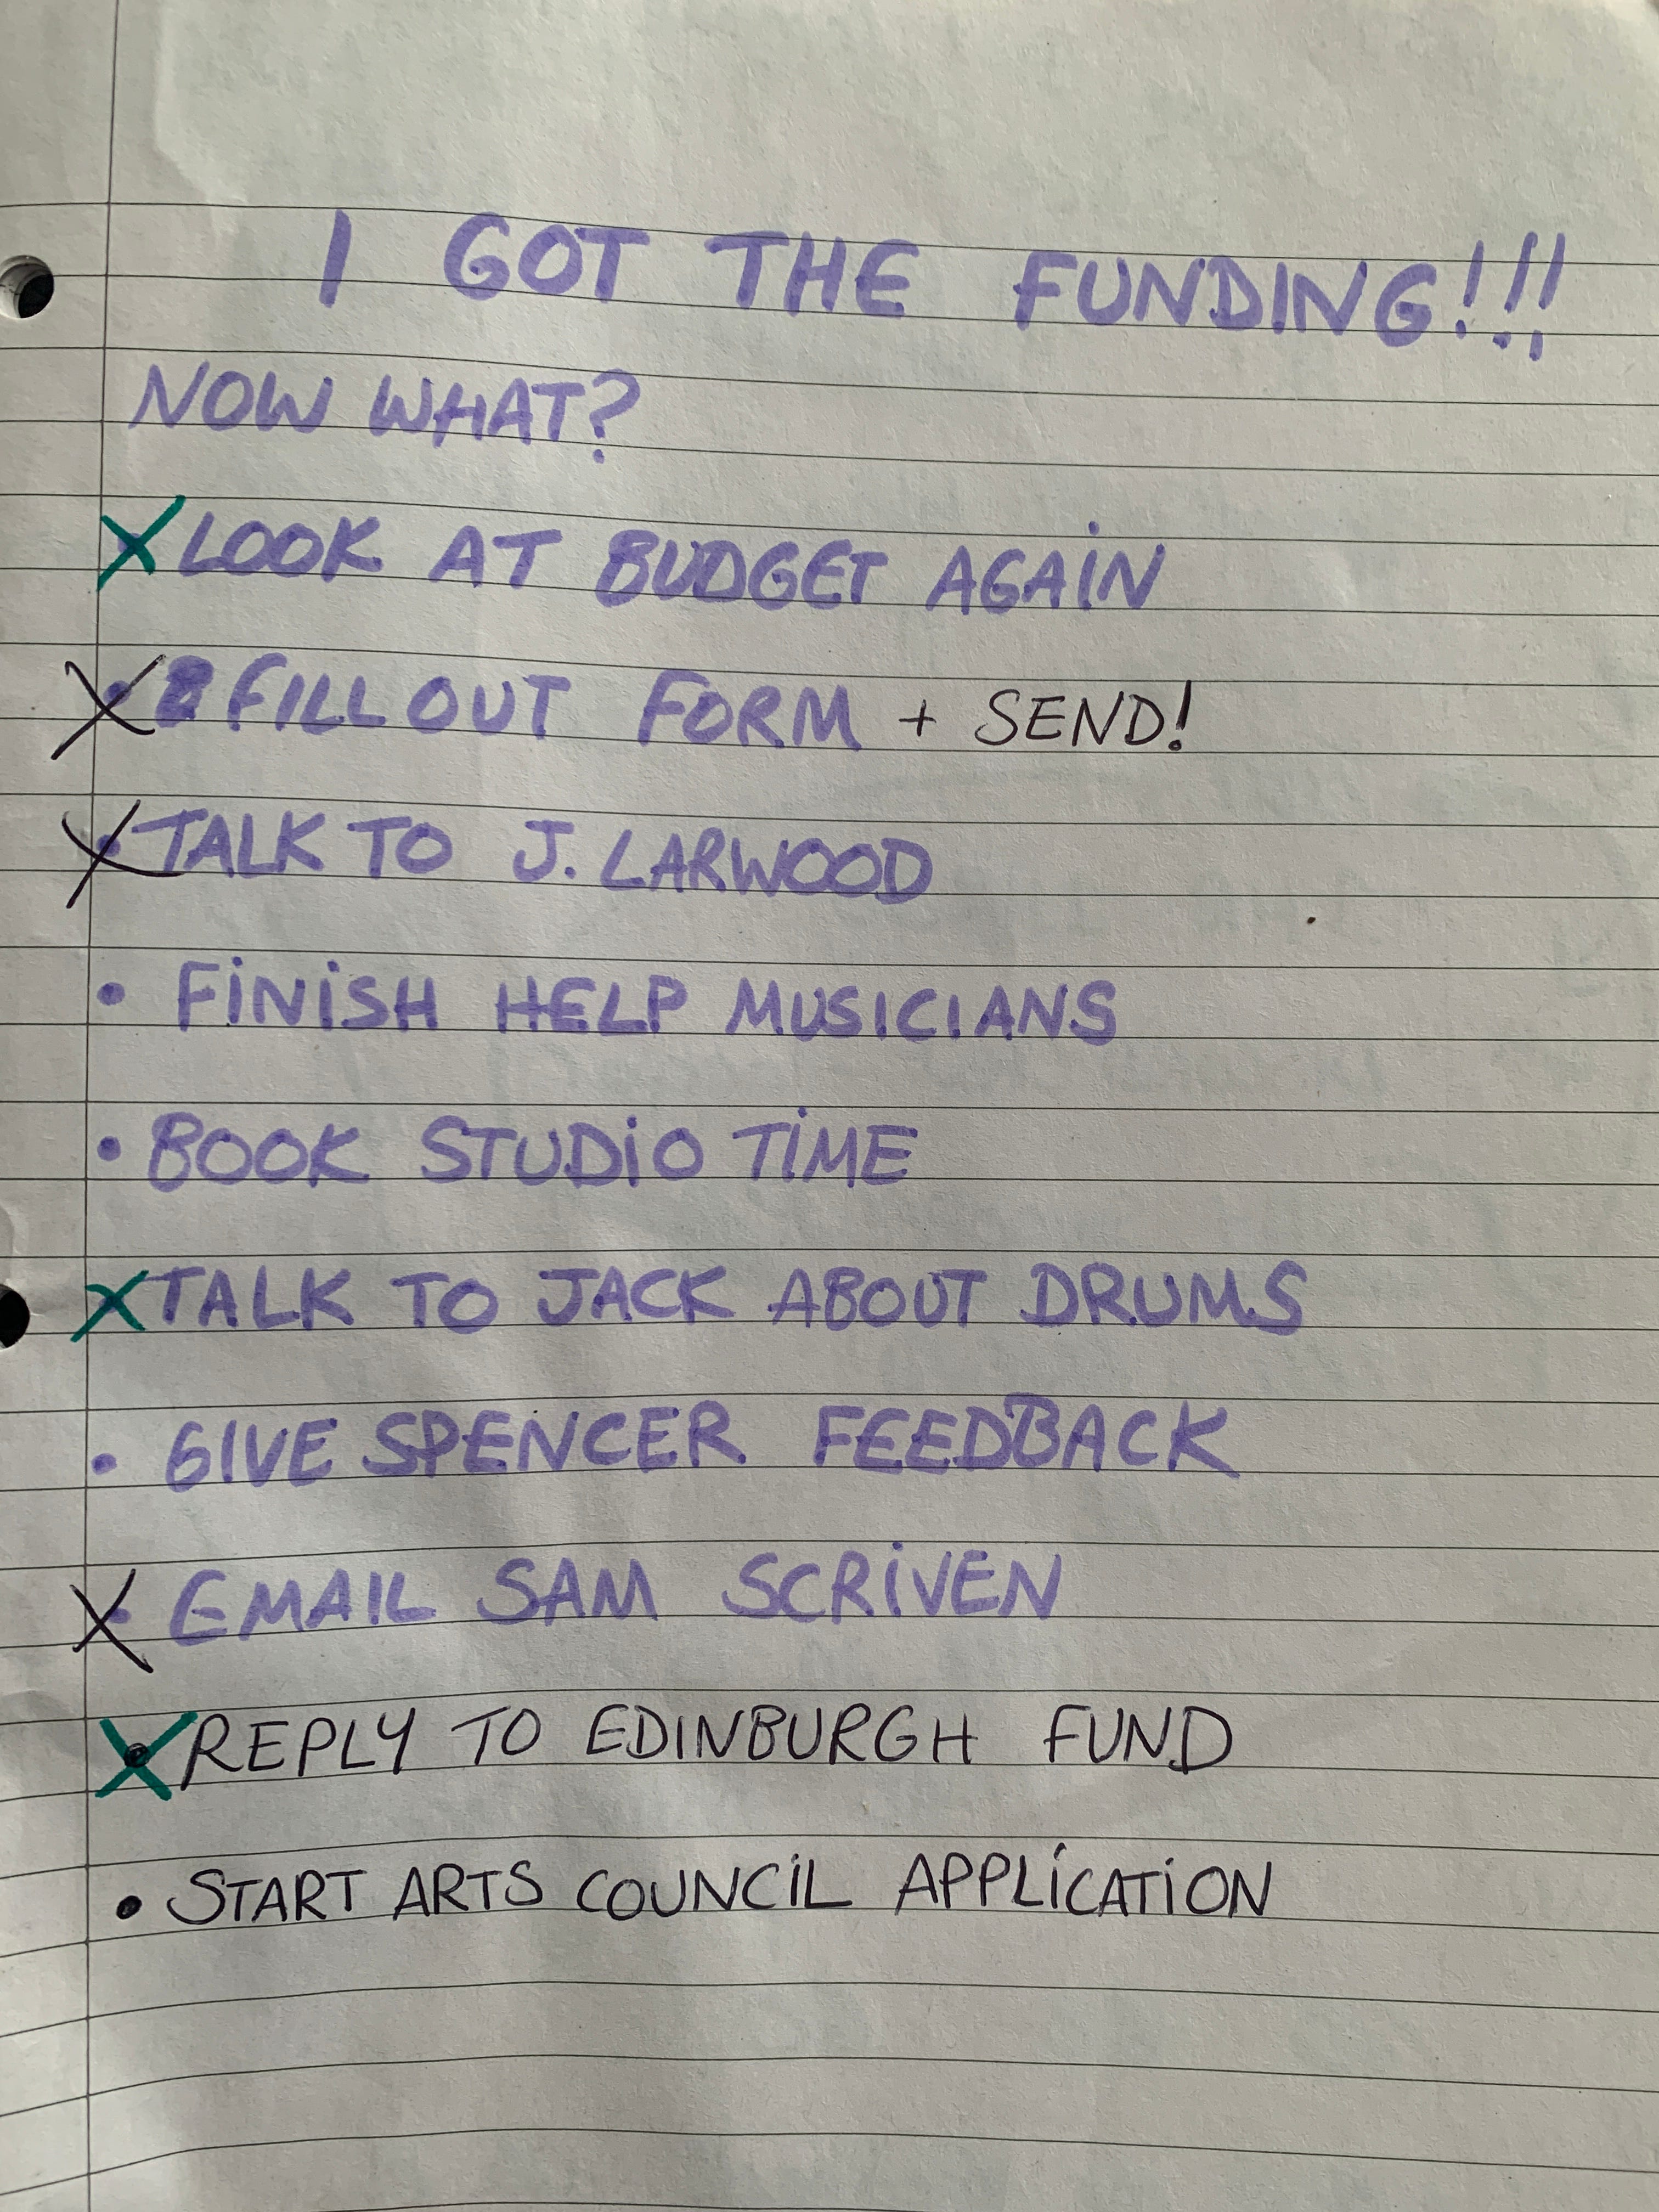 I GOT THE FUNDING!!!
NOW WHAT?
X LOOK AT BUDGET AGAIN
X FILL OUT FORM + SEND!
X TALK TO J. LARWOOD
• FINISH HELP MUSICIANS
• BOOK STUDIO TIME
X TALK TO JACK ABOUT DRUMS
• GIVE SPENCER FEEDBACK
X EMAIL SAM SCRIVEN
X REPLY TO EDINBURGH FUND
• START ARTS COUNCIL APPLICATION